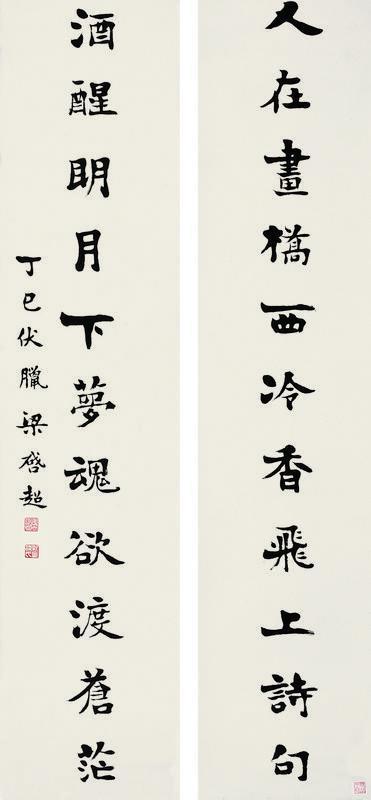 人在畫橋西冷香飛上詩句
酒醒明月下夢魂欲渡蒼茫
丁巳伏臘梁啓超